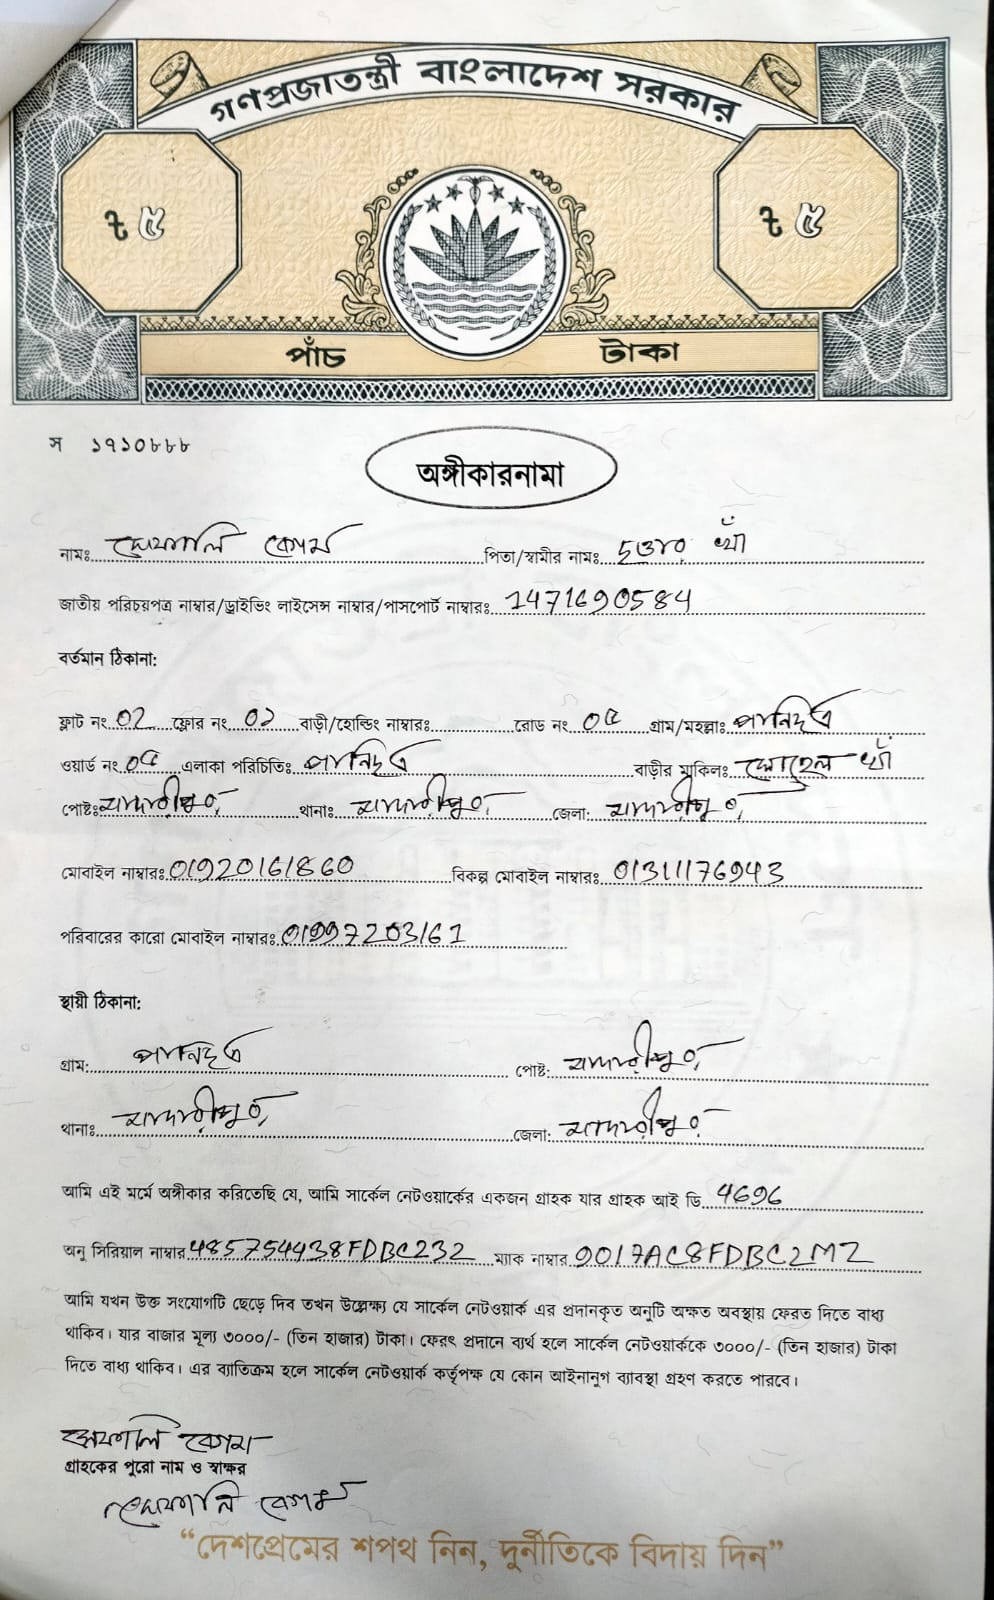 গণপ্রজাতন্ত্রী বাংলাদেশ সরকার
৳ ৫ ৳ ৫
পাঁচ টাকা
স ১৭১০৮৮৮
অঙ্গীকারনামা
নামঃ শেফালি বেগম পিতা/স্বামীর নামঃ খাঁ
জাতীয় পরিচয়পত্র নাম্বার/ড্রাইভিং লাইসেন্স নাম্বার/পাসপোর্ট নাম্বারঃ 1471690584
বর্তমান ঠিকানা:
ফ্লাট নং 02 ফ্লোর নং 02 বাড়ী/হোল্ডিং নাম্বারঃ রোড নং ০৫ গ্রাম/মহল্লাঃ পানিছত্র
ওয়ার্ড নং ০৫ এলাকা পরিচিতিঃ পানিছত্র বাড়ীর মালিকঃ সোহেল খাঁ
পোষ্টঃ মাদারীপুর থানাঃ মাদারীপুর জেলা: মাদারীপুর
মোবাইল নাম্বারঃ 01920161860 বিকল্প মোবাইল নাম্বারঃ 01311176943
পরিবারের কারো মোবাইল নাম্বারঃ 01997203161
স্থায়ী ঠিকানা:
গ্রাম: পানিছত্র পোষ্ট: মাদারীপুর
থানাঃ মাদারীপুর জেলা: মাদারীপুর
আমি এই মর্মে অঙ্গীকার করিতেছি যে, আমি সার্কেল নেটওয়ার্কের একজন গ্রাহক যার গ্রাহক আই ডি 4696
অনু সিরিয়াল নাম্বার 485754438FDBC232 ম্যাক নাম্বার 9017AC8FDBC2MZ
আমি যখন উক্ত সংযোগটি ছেড়ে দিব তখন উল্লেক্ষ্য যে সার্কেল নেটওয়ার্ক এর প্রদানকৃত অনুটি অক্ষত অবস্থায় ফেরত দিতে বাধ্য
থাকিব। যার বাজার মূল্য ৩০০০/- (তিন হাজার) টাকা। ফেরৎ প্রদানে ব্যর্থ হলে সার্কেল নেটওয়ার্ককে ৩০০০/- (তিন হাজার) টাকা
দিতে বাধ্য থাকিব। এর ব্যাতিক্রম হলে সার্কেল নেটওয়ার্ক কর্তৃপক্ষ যে কোন আইনানুগ ব্যাবস্থা গ্রহণ করতে পারবে।
শেফালি বেগম
গ্রাহকের পুরো নাম ও স্বাক্ষর
শেফালি বেগম
“দেশপ্রেমের শপথ নিন, দুর্নীতিকে বিদায় দিন”